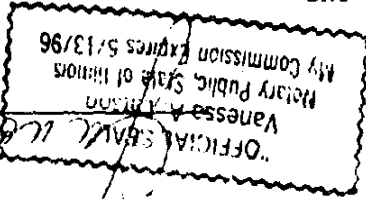 "OFFICIAL SEAL
Vanessa A.
Notary Public, State of Illinois
My Commission Expires 5/13/96